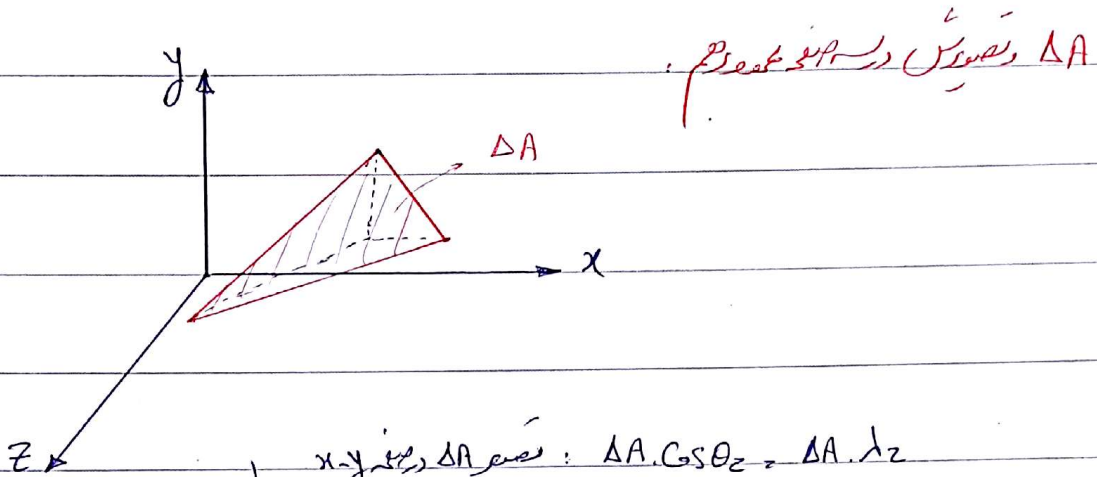 ΔA و تصویرش در سه صفحه عمود برهم :
y
ΔA
x
z
تصویر ΔA در صفحه x-y : ΔA.Cosθz = ΔA.λz